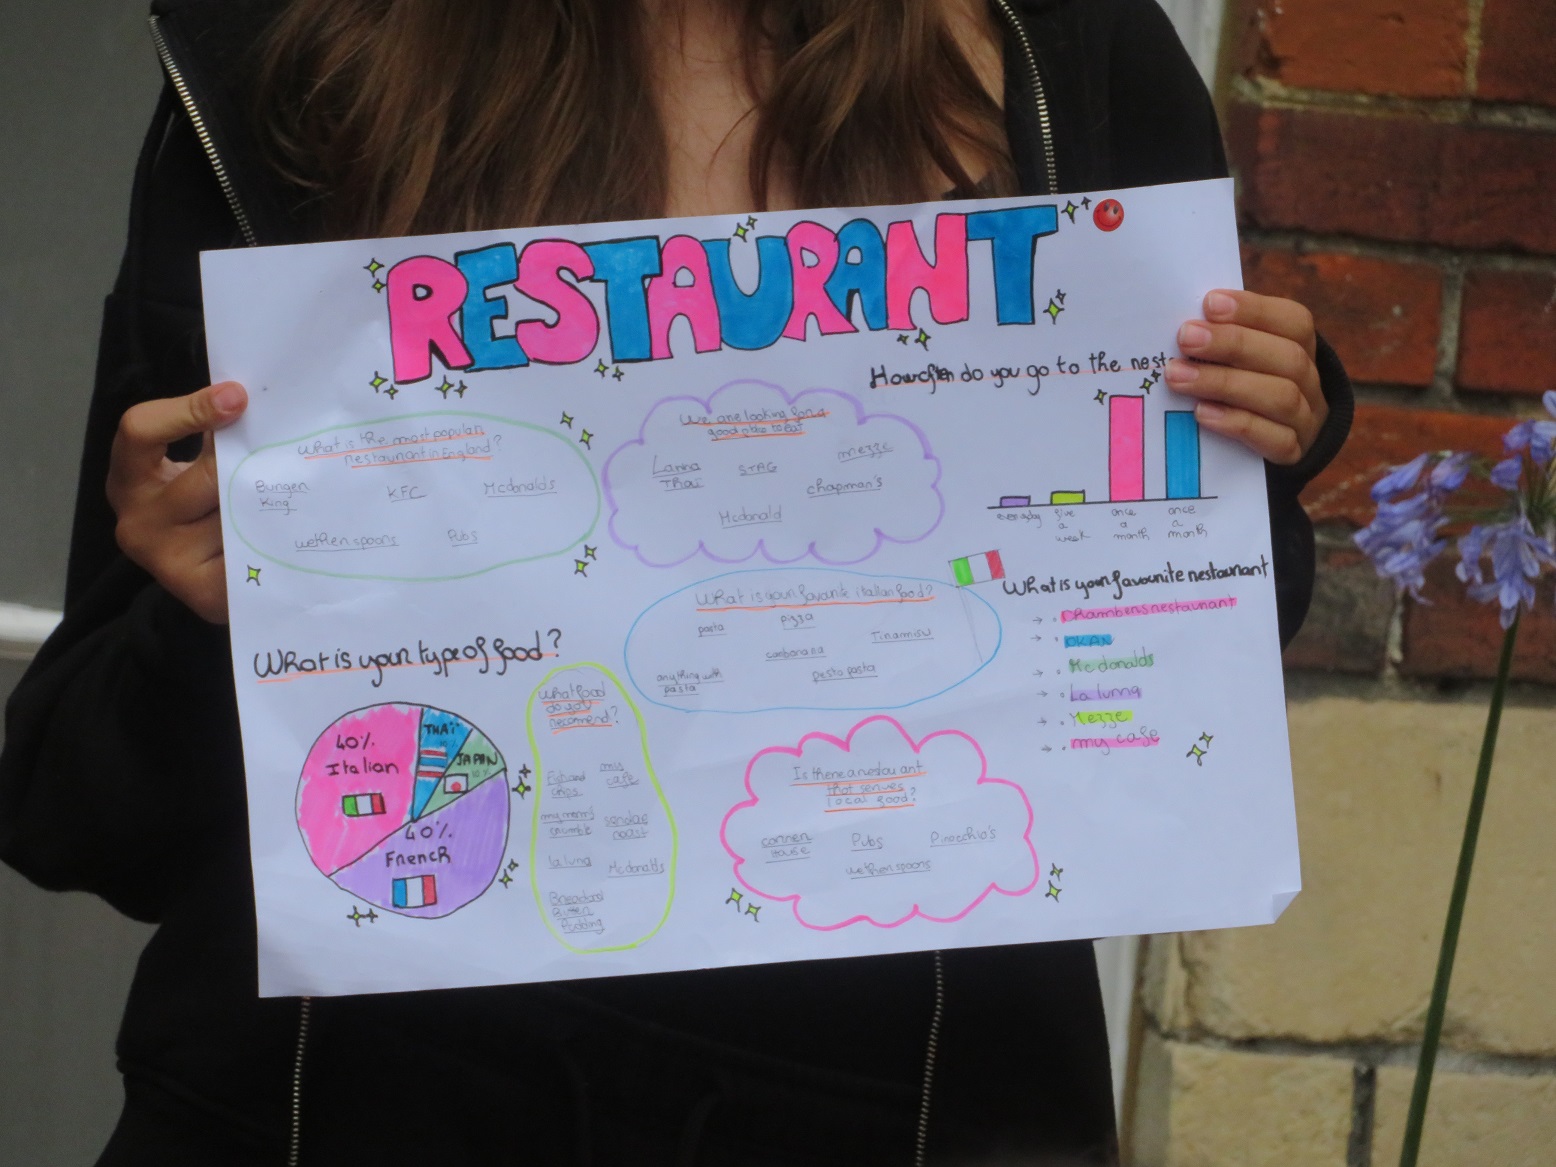 RESTAURANT
How often do you go to the rest
everyday
five
a
week
once
a
month
once
a
month
What is the most popular
restaurant in England?
Burger
King
KFC
Mcdonalds
wethenspoons
Pubs
We are looking for a
good place to eat
Lanna
Thaï
STAG
mezze
chapman's
Mcdonald
What is your favourite restaurant
Chambers restaurant
OKAN
Mcdonalds
La lunna
Mezze
my cafe
What is your favorite italian food?
pasta
pizza
carbonara
Tiramisu
anything with
pasta
pesto pasta
What is your type of food?
40%
Italian
THAÏ
10%
JAPAN
10%
40%
French
What food
do you
recomend?
Fish and
chips
my
cafe
my mom's
crumble
sondae
roast
la luna
Mcdonalds
Bread and
Butter
Pudding
Is there a restaurant
that serves
local food?
corner
House
Pubs
Pinocchio's
wethen spoons